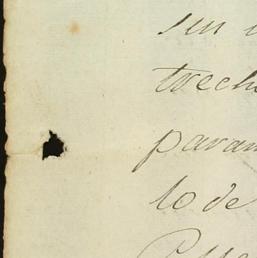 sin
trech
param
lo de